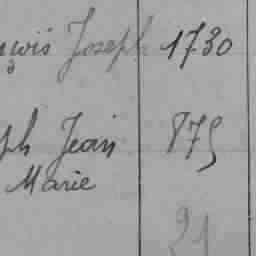 çois Joseph 1730
ph Jean 875
Marie
21